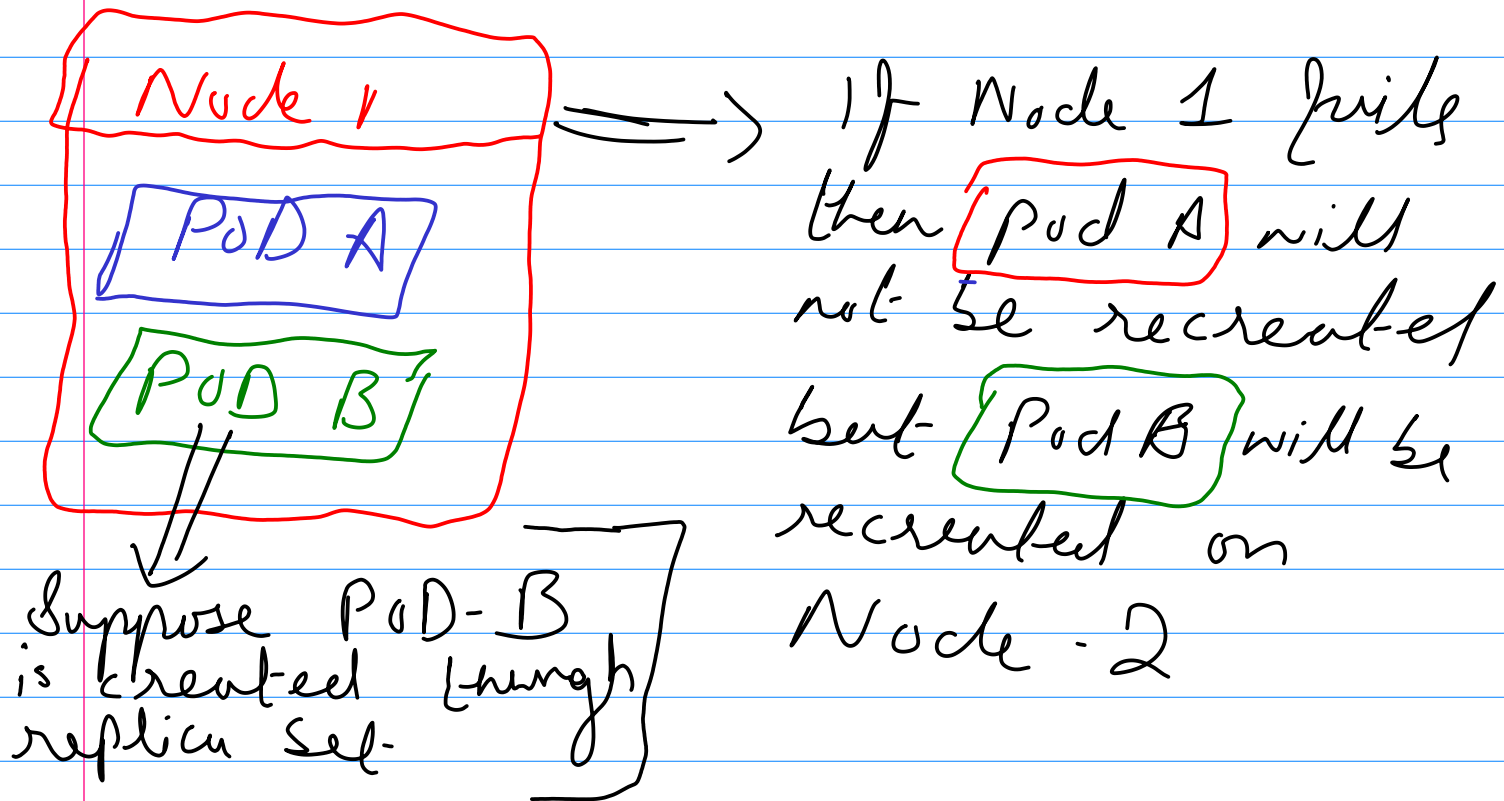 Node 1
POD A
POD B
Suppose POD-B
is created through
replica set
If Node 1 fails
then Pod A will
not be recreated
but Pod B will be
recreated on
Node - 2